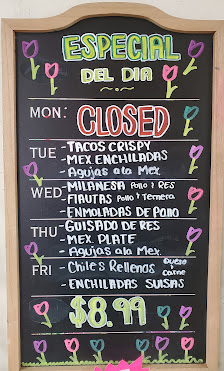 ESPECIAL
DEL DIA
MON: CLOSED
TUE - TACOS CRISPY
- MEX. ENCHILADAS
- Agujas ala Mex.
WED - MILANESA Pollo y RES
- FlAUTAS Pollo y Ternera
- ENMOLADAS DE POllO
THU - GUISADO DE RES
- MEX. PLATE
- Agujas ala Mex.
FRI - Chiles Rellenos Queso o Carne
- ENCHILADAS SUISAS
$8.99